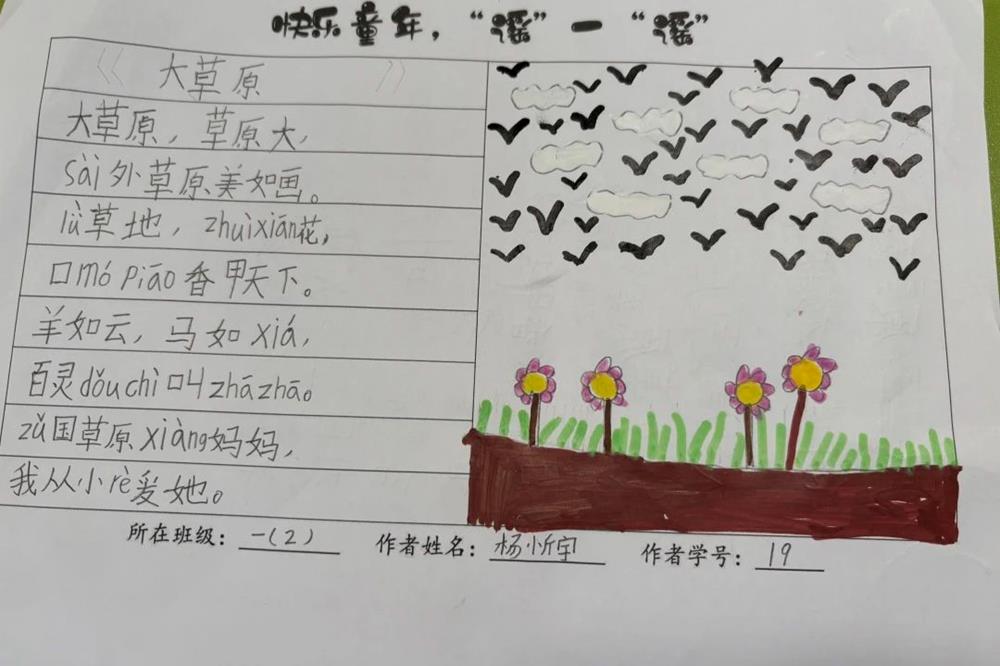 快乐童年，“谣”一“谣”
《 大草原 》
大草原，草原大，
sài外草原美如画。
lǜ草地，zhuìxiān花，
口mó piāo香甲天下。
羊如云，马如xiá，
百灵dǒuchì叫zhāzhā。
zǔ国草原xiàng妈妈，
我从小rè爱她。
所在班级：一(2) 作者姓名：杨忻宇 作者学号：19